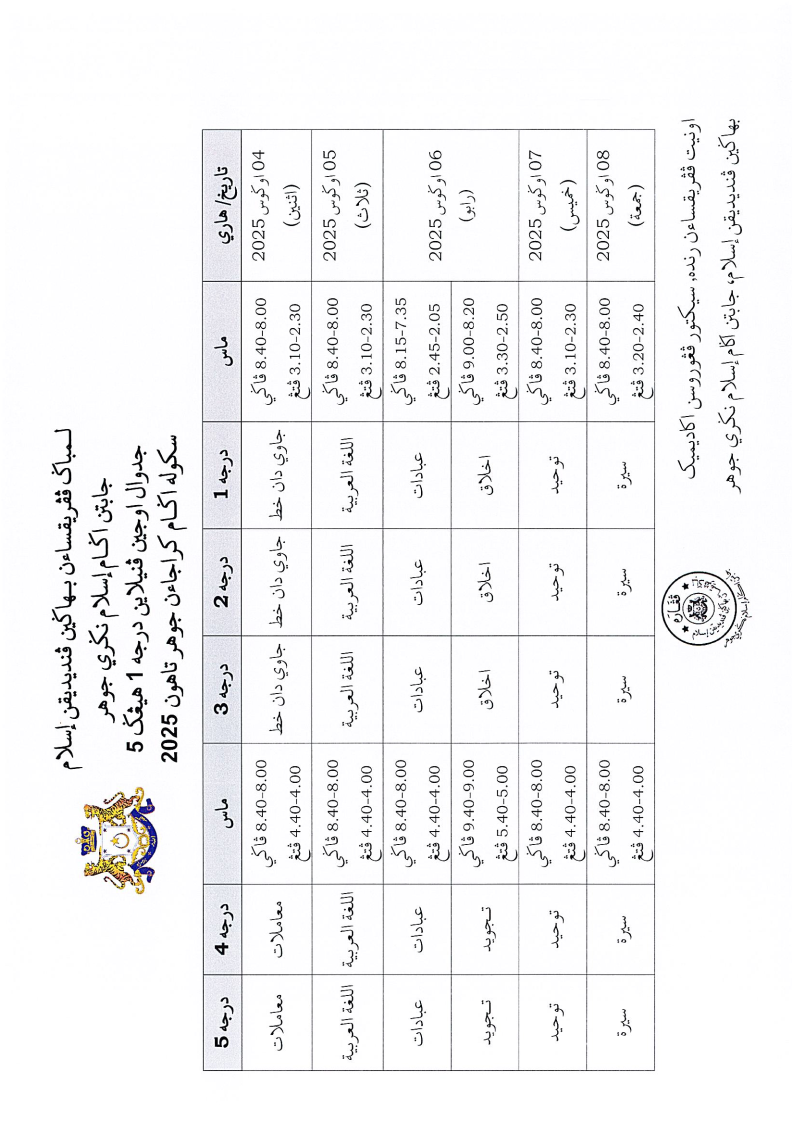 لمباݢ ڤڤريقساءن بهاݢين ڤنديديقن إسلام
جابتن اݢام إسلام نݢري جوهر
جدوال اوجين ڤنيلاين درجه 1 هيڠݢ 5
سکوله اݢام کراجاءن جوهر تاهون 2025
تاريخ/هاري ماس درجه 1 درجه 2 درجه 3 ماس درجه 4 درجه 5
04 اوݢوس 2025 8.40-8.00 ڤاݢي جاوي دان خط جاوي دان خط جاوي دان خط 8.40-8.00 ڤاݢي معاملات معاملات
(اثنين) 3.10-2.30 ڤتڠ 4.40-4.00 ڤتڠ
05 اوݢوس 2025 8.40-8.00 ڤاݢي اللغة العربية اللغة العربية اللغة العربية 8.40-8.00 ڤاݢي اللغة العربية اللغة العربية
(ثلاث) 3.10-2.30 ڤتڠ 4.40-4.00 ڤتڠ
06 اوݢوس 2025 8.15-7.35 ڤاݢي عبادات عبادات عبادات 8.40-8.00 ڤاݢي عبادات عبادات
(رابو) 2.45-2.05 ڤتڠ 4.40-4.00 ڤتڠ
9.00-8.20 ڤاݢي اخلاق اخلاق اخلاق 9.40-9.00 ڤاݢي تجويد تجويد
3.30-2.50 ڤتڠ 5.40-5.00 ڤتڠ
07 اوݢوس 2025 8.40-8.00 ڤاݢي توحيد توحيد توحيد 8.40-8.00 ڤاݢي توحيد توحيد
(خميس) 3.10-2.30 ڤتڠ 4.40-4.00 ڤتڠ
08 اوݢوس 2025 8.40-8.00 ڤاݢي سيرة سيرة سيرة 8.40-8.00 ڤاݢي سيرة سيرة
(جمعة) 3.20-2.40 ڤتڠ 4.40-4.00 ڤتڠ
اونيت ڤڤريقساءن رنده, سيکتور ڤڠوروسن اکاديميک
بهاݢين ڤنديديقن إسلام، جابتن اݢام إسلام نݢري جوهر
ڤڠاره